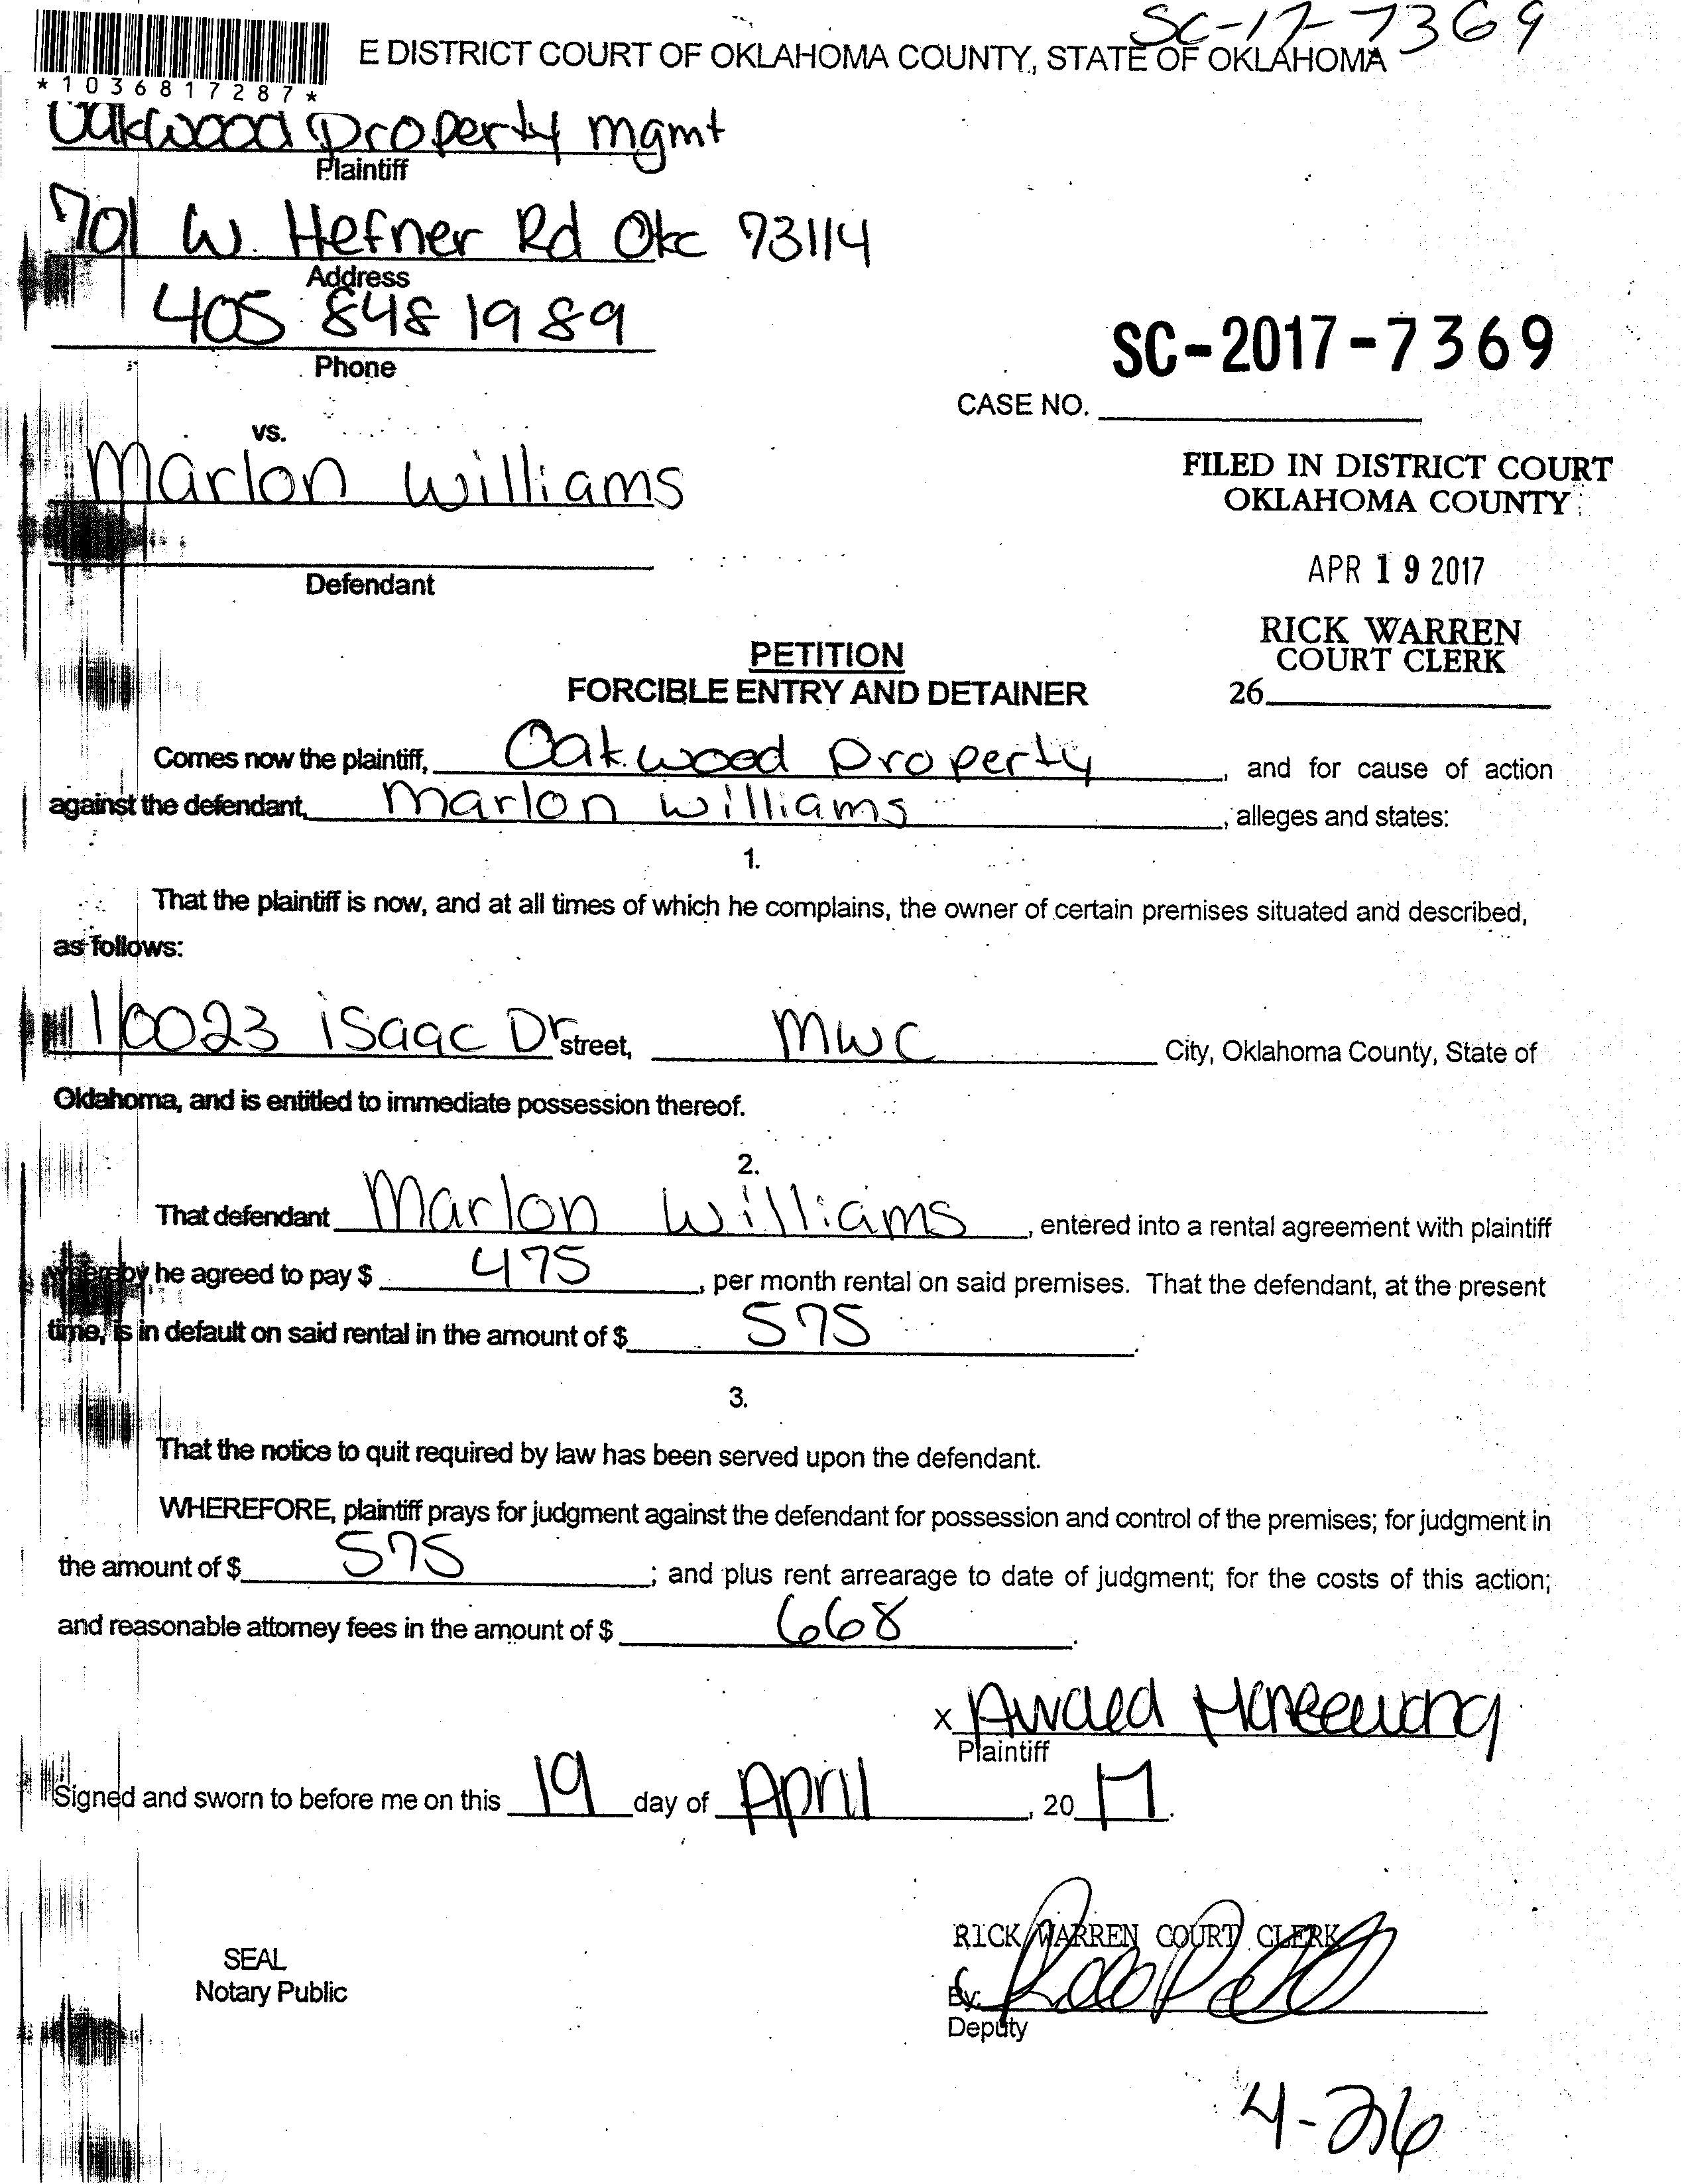 SC-17-7369
E DISTRICT COURT OF OKLAHOMA COUNTY, STATE OF OKLAHOMA
*1036817287*
Oakwood Property mgmt
Plaintiff
701 W. Hefner Rd Okc 73114
Address
405 848 1989
Phone
SC-2017-7369
CASE NO.
vs.
Marlon Williams
FILED IN DISTRICT COURT
OKLAHOMA COUNTY
APR 19 2017
Defendant
RICK WARREN
COURT CLERK
26
PETITION
FORCIBLE ENTRY AND DETAINER
Comes now the plaintiff, Oakwood Property, and for cause of action
against the defendant, Marlon Williams, alleges and states:
1.
That the plaintiff is now, and at all times of which he complains, the owner of certain premises situated and described,
as follows:
10023 isaac Dr street, MWC City, Oklahoma County, State of
Oklahoma, and is entitled to immediate possession thereof.
2.
That defendant Marlon Williams, entered into a rental agreement with plaintiff
whereby he agreed to pay $ 475, per month rental on said premises. That the defendant, at the present
time, is in default on said rental in the amount of $ 575.
3.
That the notice to quit required by law has been served upon the defendant.
WHEREFORE, plaintiff prays for judgment against the defendant for possession and control of the premises; for judgment in
the amount of $ 575; and plus rent arrearage to date of judgment; for the costs of this action;
and reasonable attorney fees in the amount of $ 668.
X
Plaintiff
Signed and sworn to before me on this 19 day of April, 20 17.
RICK WARREN COURT CLERK
SEAL
Notary Public
By:
Deputy
4-26